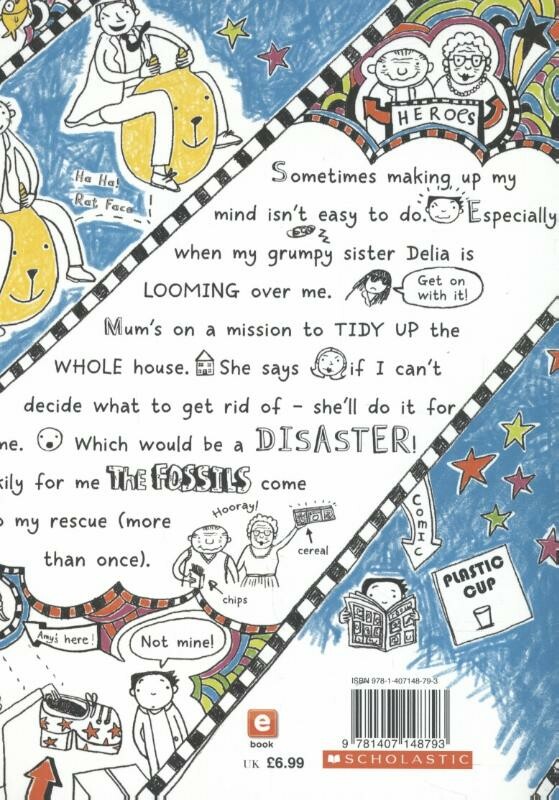 HEROES
Ha Ha!
Rat Face
Sometimes making up my
mind isn't easy to do. Especially
when my grumpy sister Delia is
LOOMING over me.
Get on
with it!
Mum's on a mission to TIDY UP the
WHOLE house. She says if I can't
decide what to get rid of – she'll do it for
me. Which would be a DISASTER!
kily for me THE FOSSILS come
o my rescue (more
than once).
Hooray!
cereal
chips
COMIC
PLASTIC
CUP
Amy's here!
Not mine!
ISBN 978-1-407148-79-3
9 781407 148793
e
book
UK £6.99
SCHOLASTIC